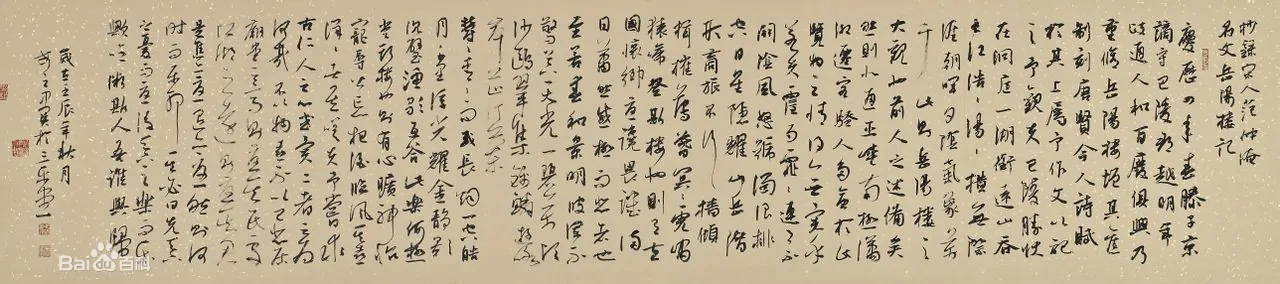 抄錄宋人范仲淹
名文岳陽樓記
慶歷四年春滕子京
謫守巴陵郡越明年
政通人和百廢俱興乃
重修岳陽樓增其舊
制刻唐賢今人詩賦
於其上屬予作文以記
之予觀夫巴陵勝狀
在洞庭一湖銜遠山吞
長江浩浩湯湯橫無際
涯朝暉夕陰氣象萬
千此則岳陽樓之
大觀也前人之述備矣
然則北通巫峽南極瀟
湘遷客騷人多會於此
覽物之情得無異乎
若夫霪雨霏霏連月不
開陰風怒號濁浪排
空日星隱耀山岳潛
形商旅不行檣傾
楫摧薄暮冥冥虎嘯
猿啼登斯樓也則有去
國懷鄉憂讒畏譏滿
目蕭然感極而悲者也
至若春和景明波瀾不
驚上下天光一碧萬頃
沙鷗翔集錦鱗游泳
岸芷汀蘭
鬱鬱青青而或長煙一空皓
月千里浮光耀金靜影
沉璧漁歌互答此樂何極
登斯樓也則有心曠神怡
寵辱皆忘把酒臨風其喜
洋洋者矣嗟夫予嘗求
古仁人之心或異二者之為
何哉不以物喜不以己悲居
廟堂之高則憂其民處
江湖之遠則憂其君
是進亦憂退亦憂然則何
時而樂耶其必曰先天下
之憂而憂後天下之樂而樂
歟噫微斯人吾誰與歸
歲在壬辰年秋月
寫於三
Bai度百科